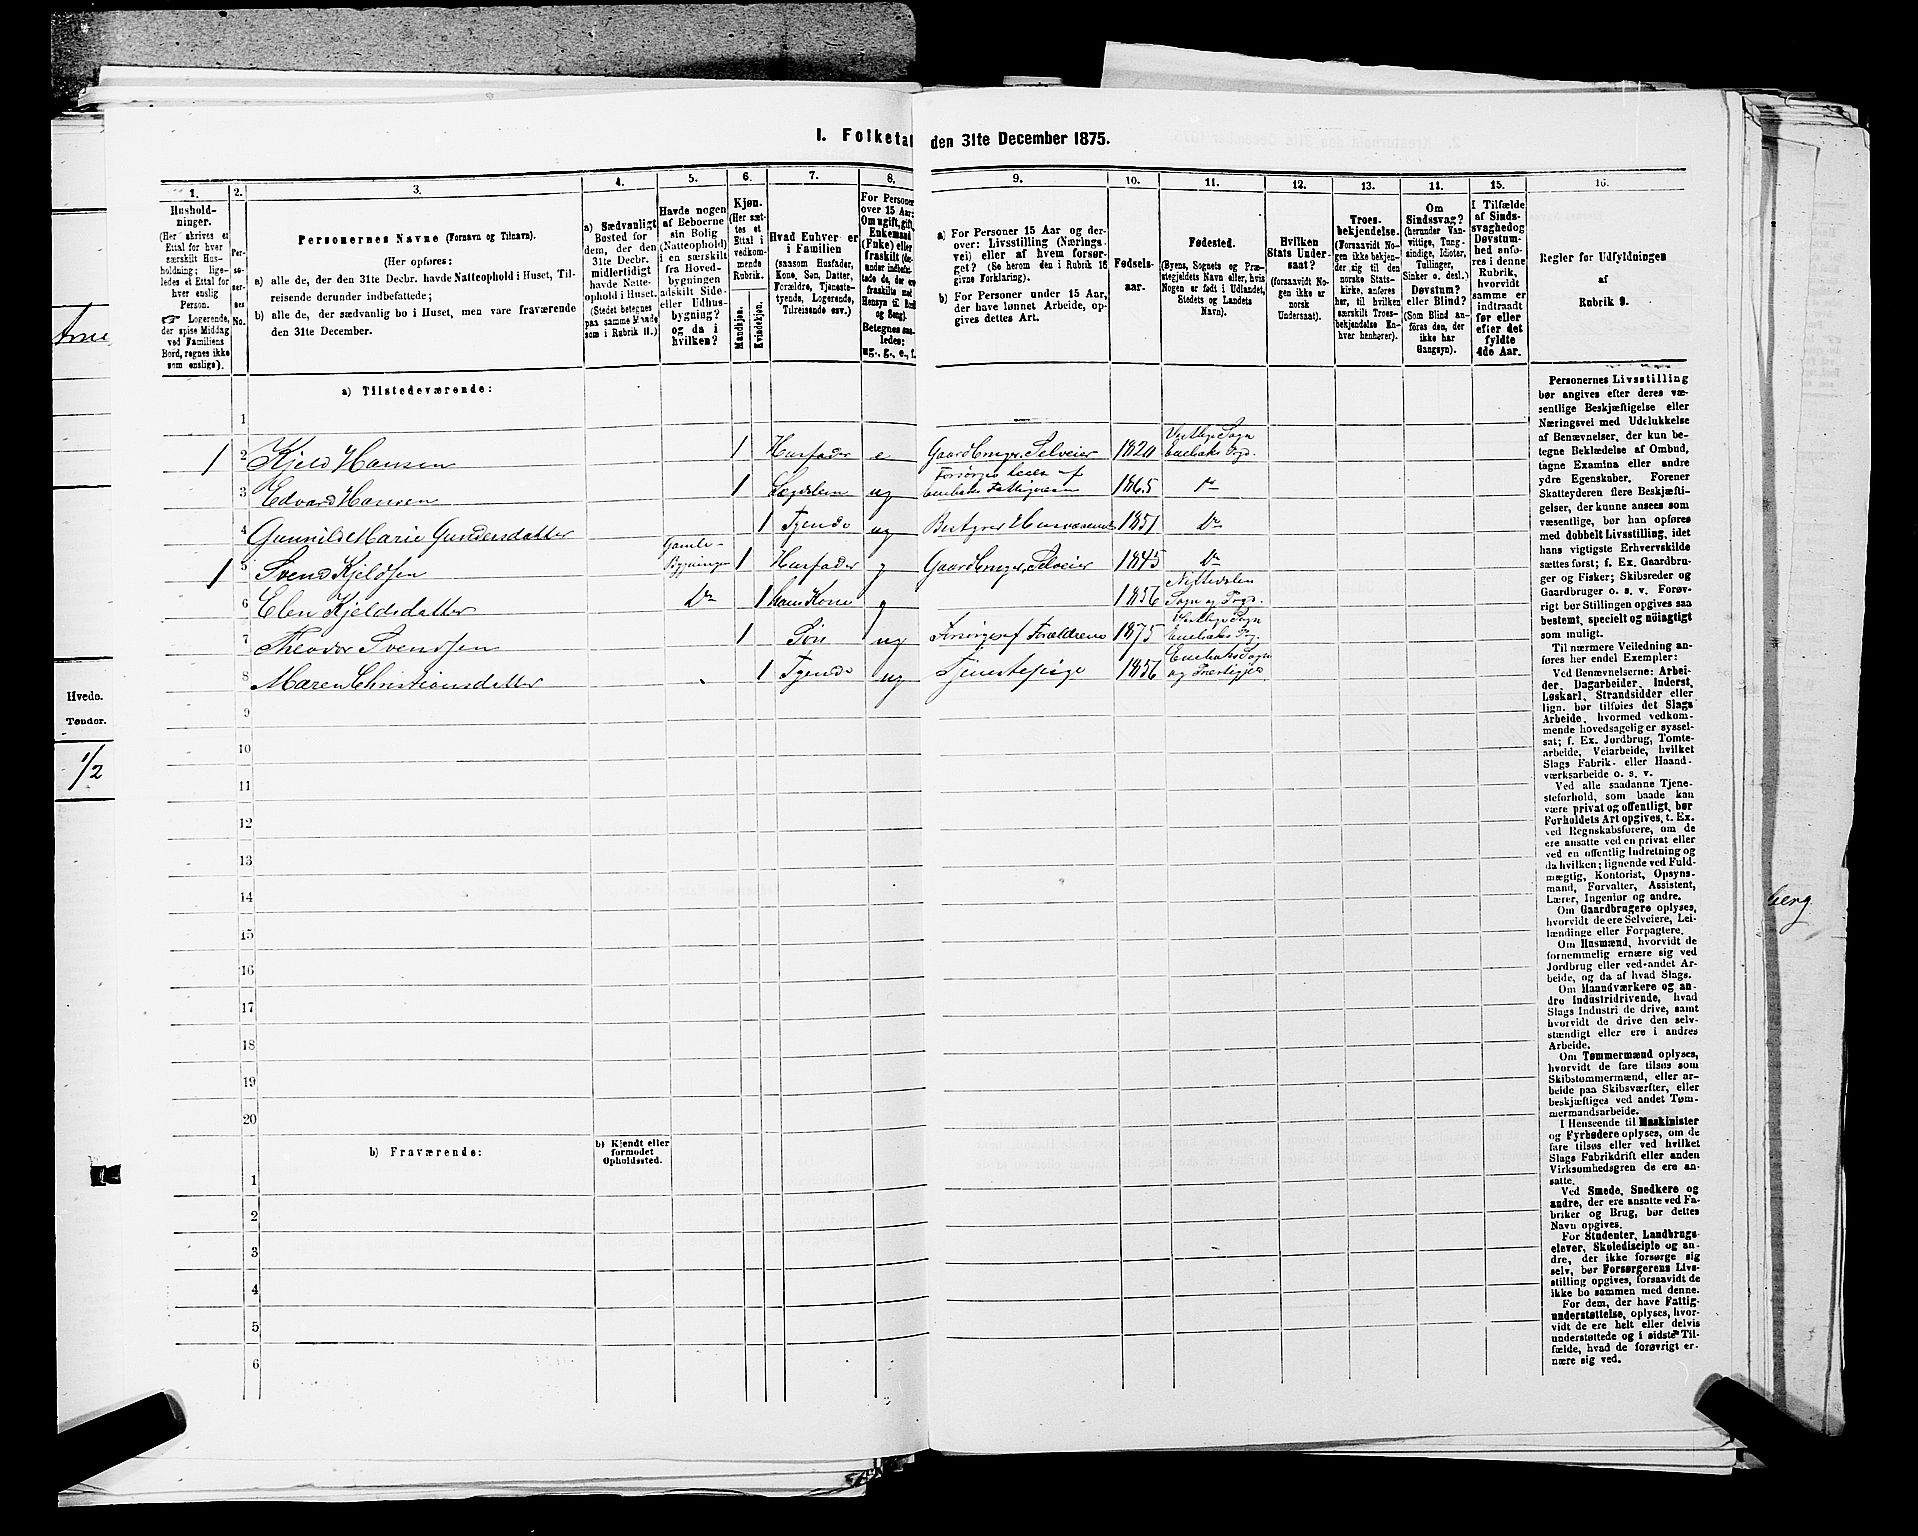 I. Folketal den 31te December 1875.
1.
2.
3.
4.
5.
6.
7.
8.
9.
10.
11.
12.
13.
14.
15.
16.
Hushold-
ninger.
(Her skrives et
Ettal for hver
særskilt Hus-
holdning; lige-
ledes et Ettal for
hver enslig
Person.
☞ Logerende,
der spise Middag
ved Familiens
Bord, regnes ikke
som enslige).
Per-
so-
ner-
nes
No.
Personernes Navne (Fornavn og Tilnavn).
(Her opføres:
a) alle de, der den 31te Decbr. havde Natteophold i Huset, Til-
reisende derunder indbefattede;
b) alle de, der sædvanlig bo i Huset, men vare fraværende
den 31te December.
a) Sædvanligt
Bosted for
dem, der den
31te Decbr.
midlertidigt
havde Natte-
ophold i Huset.
(Stedet betegnes
paa samme Maade
som i Rubrik II.)
Havde nogen
af Beboerne
sin Bolig
(Natteophold)
i en særskilt
fra Hoved-
bygningen
adskilt Side-
eller Udhus-
bygning?
og da i
hvilken?
Kjøn.
(Her sæt-
tes et
Ettal i
vedkom-
mende
Rubrik.
Mandkjøn.
Kvindekjøn.
Hvad Enhver er
i Familien
(saasom Husfader,
Kone, Søn, Datter,
Forældre, Tjeneste-
tyende, Logerende,
Tilreisende osv.)
For Personer
over 15 Aar:
Om ugift, gift,
Enkemand
(Enke) eller
fraskilt
Betegnes saa-
ledes:
ug., g., e., f.
a) For Personer 15 Aar og der-
over: Livsstilling (Nærings-
vei) eller af hvem forsør-
get? (Se herom den i Rubrik 16
givne Forklaring).
b) For Personer under 15 Aar,
der have lønnet Arbeide, op-
gives dettes Art.
Fødsels-
aar.
Fødested.
(Byens, Sognets og Præ-
stegjeldets Navn eller, hvis
Nogen er født i Udlandet,
Stedets og Landets
Navn).
Hvilken
Stats Under-
saat?
(forsaavidt No-
gen ikke er
norsk
Undersaat).
Troes-
bekjendelse.
(Forsaavidt No-
gen ikke bekjen-
der sig til den
norske Stats-
kirke, anføres
her, til hvilken
særskilt Troes-
bekjendelse En-
hver henhører).
Om
Sindssvag?
(herunder Van-
vittige, Tung-
sindige, Idioter,
Tullinger,
Sinker o. desl.)
Døvstum?
eller Blind?
(Som Blind an-
føres den, der
ikke har
Gangsyn).
I Tilfælde
af Sinds-
svaghed og
Døvstum-
hed anfø-
res i denne
Rubrik,
hvorvidt
samme er
indtraadt
før eller
efter det
fyldte
4de Aar.
Regler for Udfyldningen
af
Rubrik 9.
a) Tilstedeværende:
1
1 2 Kjeld Hansen 1 Husfader e Gaardbruger, Selveier 1820 Vestbye Sogn Enebaks Prgd.
3 Edvard Hansen 1 Lægdslem ug Forsørges heelt af Enebaks Fattigvæsen 1865 Do
4 Gunnild Marie Gundersdatter 1 Tyende ug Bestyrer Husvæsenet 1851 Do
1 5 Svend Kjeldsen Gamle Bygninger 1 Husfader g Gaardbruger, Selveier 1845 Do
6 Elen Kjeldsdatter Do 1 hans Kone g 1856 Nittedalen Sogn og Prgd.
7 Theodor Svendsen 1 Søn ug Forsørges af Forældrene 1875 Vestbye Sogn Enebaks Prg.
8 Maren Christiansdatter 1 Tyende ug Tjenestepige 1856 Enebaks Sogn og Præstegjeld
9
10
11
12
13
14
15
16
17
18
19
20
b) Fraværende:
b) Kjendt eller
formodet
Opholdssted.
1
2
3
4
5
6
Personernes Livsstilling
bør angives efter deres væ-
sentlige Beskjæftigelse eller
Næringsvei med Udelukkelse
af Benævnelser, der kun be-
tegne Beklædelse af Ombud,
tagne Examina eller andre
ydre Egenskaber. Forener
Skatteyderen flere Beskjæfti-
gelser, der kunne ansees som
væsentlige, bør han opføres
med dobbelt Livsstilling, idet
hans vigtigste Erhvervskilde
sættes først; f. Ex. Gaardbru-
ger og Fisker; Skibsreder og
Gaardbruger o. s. v. Forøv-
rigt bør Stillingen opgives saa
bestemt, specielt og nøiagtigt
som muligt.
Til nærmere Veiledning an-
føres her endel Exempler:
Ved Benævnelserne: Arbei-
der, Dagarbeider, Inderst,
Løskarl, Strandsidder eller
lign. bør tilføies det Slags
Arbeide, hvormed vedkom-
mende hovedsagelig er syssel-
sat; f. Ex. Jordbrug, Tomte-
arbeide, Veiarbeide, hvilket
Slags Fabrik- eller Haand-
værksarbeide o. s. v.
Ved alle saadanne Tjene-
steforhold, som baade kan
være privat og offentligt, bør
Forholdets Art opgives, t. Ex.
ved Regnskabsførere, om de
ere ansatte ved en privat eller
ved en offentlig Indretning og
da hvilken; lignende ved Fuld-
mægtig, Kontorist, Opsyns-
mand, Forvalter, Assistent,
Lærer, Ingeniør og andre.
Om Gaardbrugere oplyses,
hvorvidt de ere Selveiere, Lei-
lændinge eller Forpagtere.
Om Husmænd, hvorvidt de
fornemmelig ernære sig ved
Jordbrug eller ved andet Ar-
beide, og da af hvad Slags.
Om Haandværkere og an-
dre Industridrivende, hvad
Slags Industri de drive, samt
hvorvidt de drive den selv-
stændigt eller ere i andres
Arbeide.
Om Tømmermænd oplyses,
hvorvidt de fare tilsøs som
Skibstømmermænd, eller ar-
beide paa Skibsværfter, eller
beskjæftiges ved andet Tøm-
mermandsarbeide.
I Henseende til Maskinister
og Fyrbødere oplyses, om de
fare tilsøs eller ved hvilket
Slags Fabrikdrift eller anden
Virksomhedsgren de ere an-
satte.
Ved Smede, Snedkere og
andre, der ere ansatte ved Fa-
briker og Brug, bør dettes
Navn opgives.
For Studenter, Landbrugs-
elever, Skoledisciple og an-
dre, der ikke forsørge sig
selv, bør Forsørgerens Livs-
stilling opgives, forsaavidt de
ikke bo sammen med denne.
For dem, der have Fattig-
understøttelse, oplyses, hvor-
vidt de ere helt eller delvis
understøttede og i sidste Til-
fælde, hvad de forøvrigt er-
nære sig ved.
Hvede.
Tønder.
1/2
berg